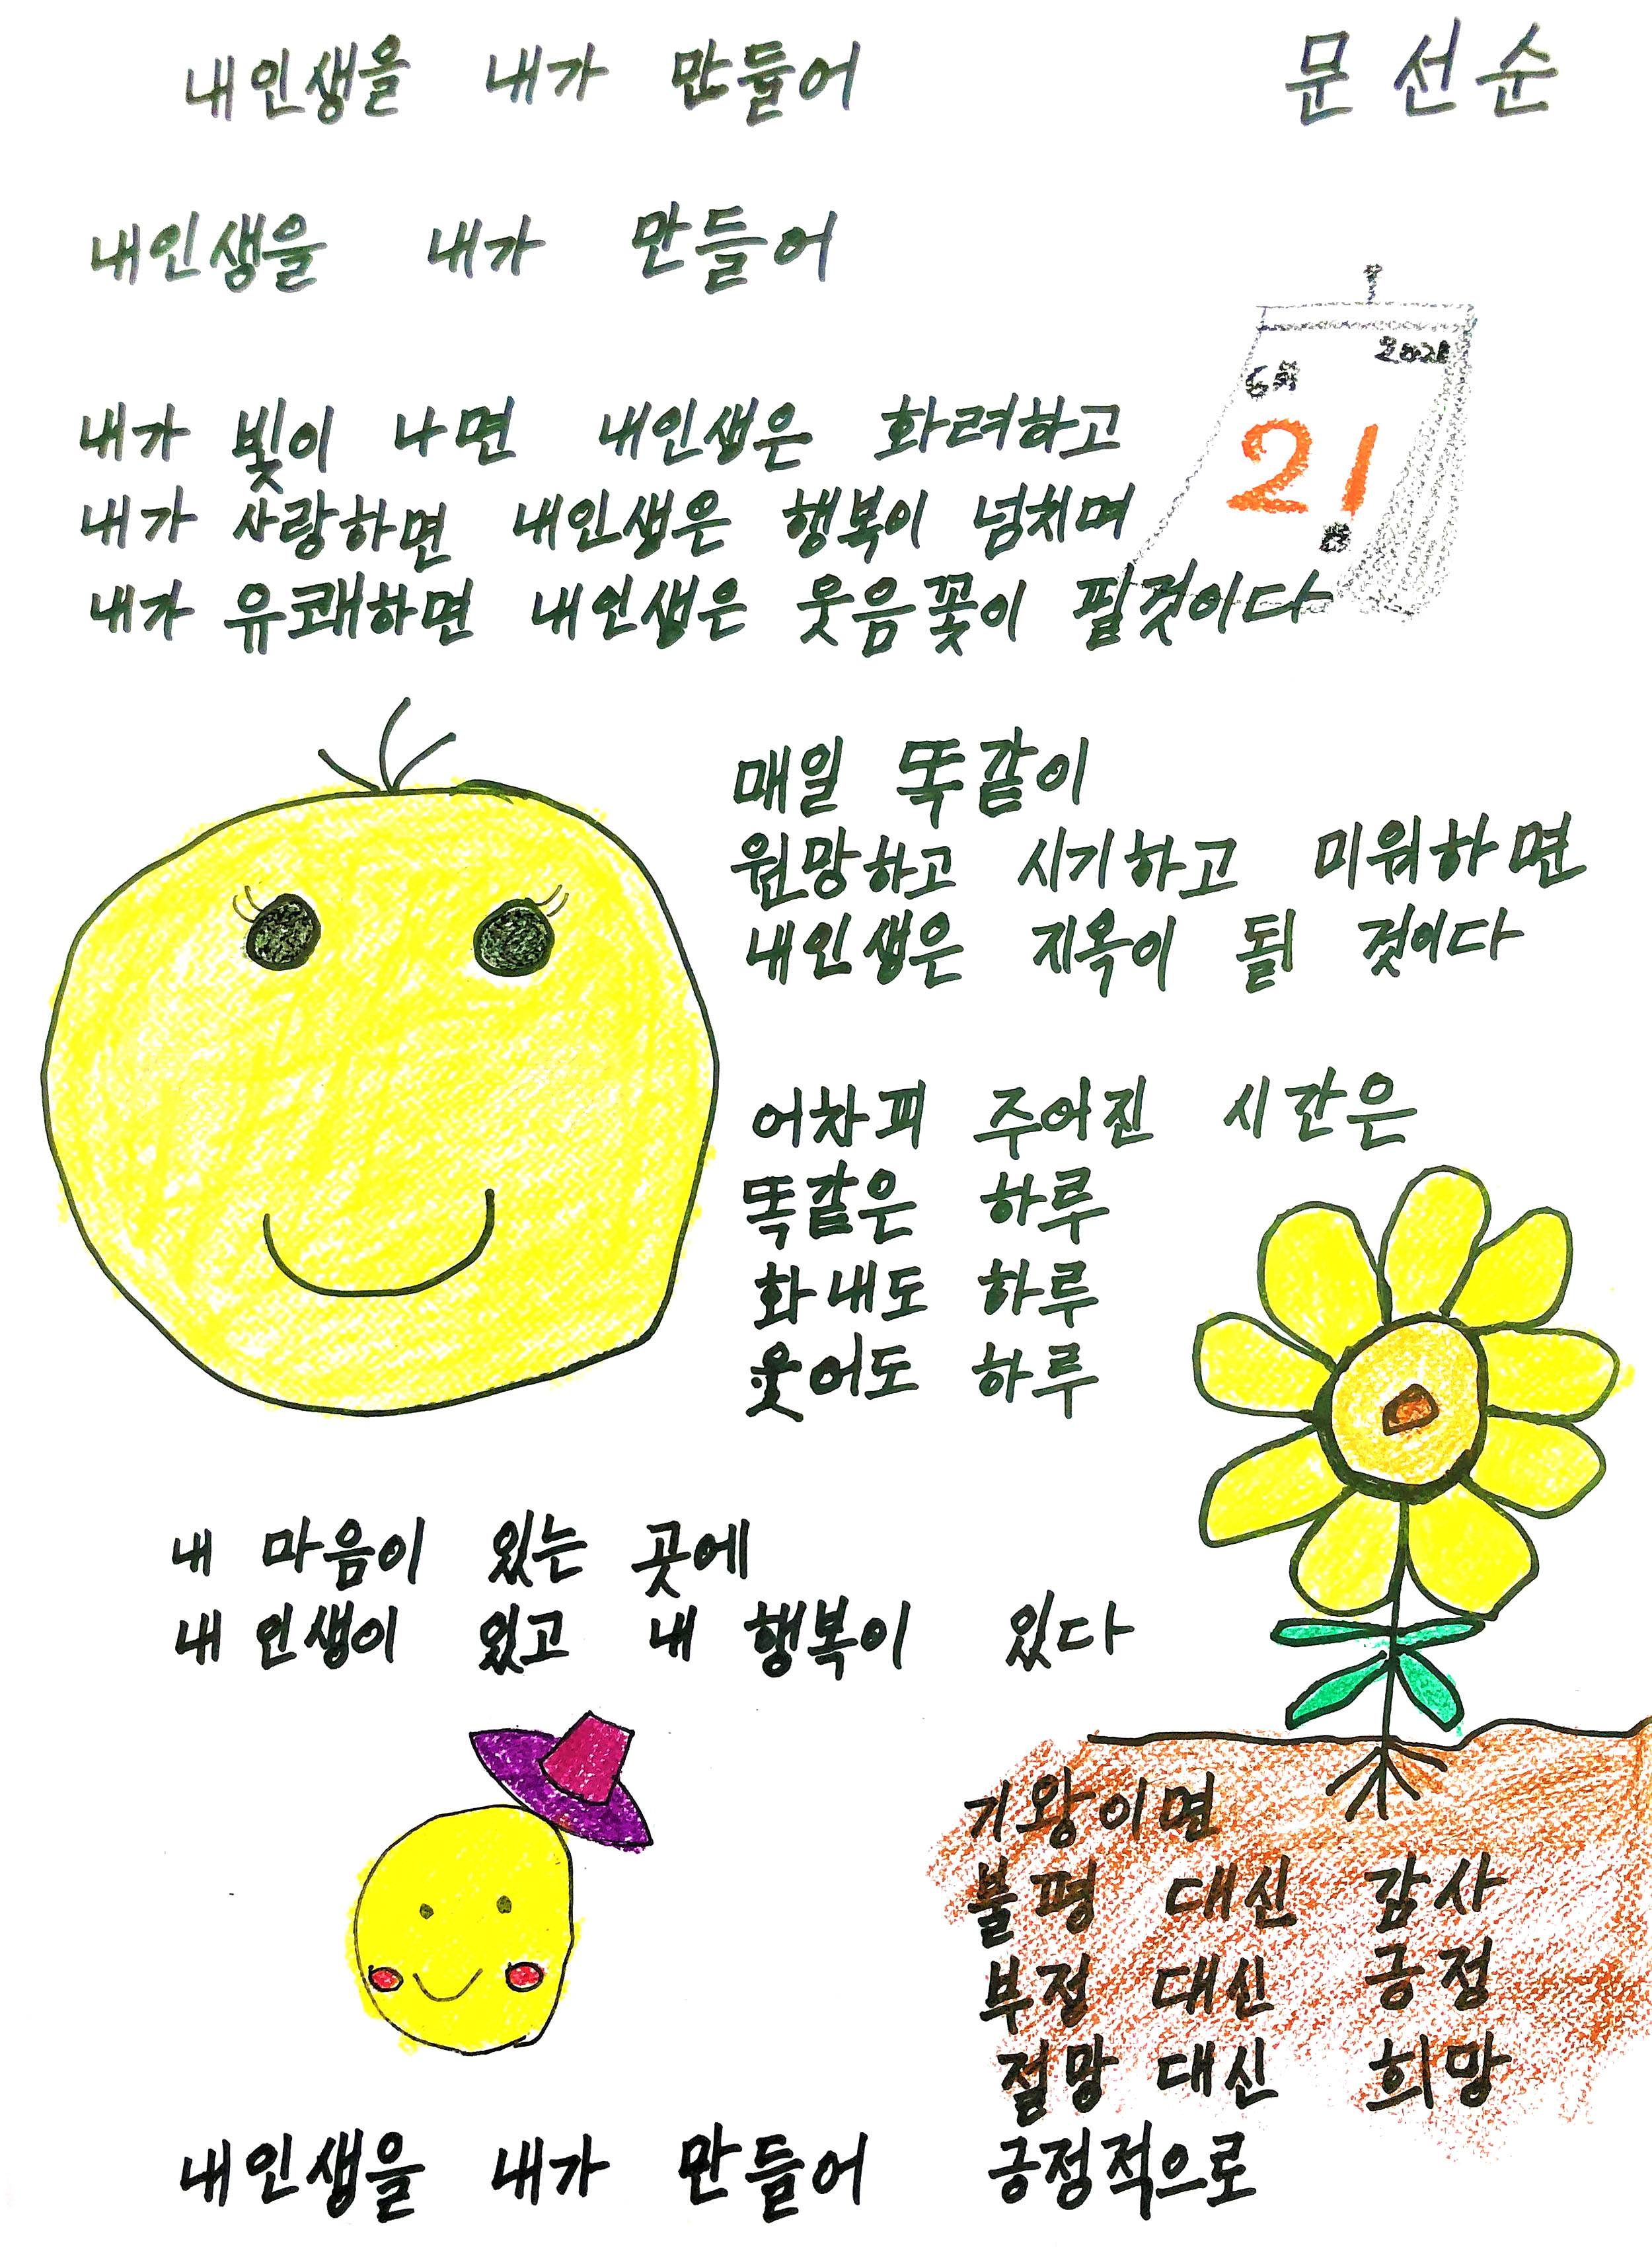 내인생을 내가 만들어
문선순
내인생을 내가 만들어
2021
6月
21
내가 빛이 나면 내인생은 화려하고
내가 사랑하면 내인생은 행복이 넘치며
내가 유쾌하면 내인생은 웃음꽃이 필것이다
매일 똑같이
원망하고 시기하고 미워하면
내인생은 지옥이 될 것이다
어차피 주어진 시간은
똑같은 하루
화내도 하루
웃어도 하루
내 마음이 있는 곳에
내 인생이 있고 내 행복이 있다
기왕이면
불평 대신 감사
부정 대신 긍정
절망 대신 희망
내인생을 내가 만들어 긍정적으로